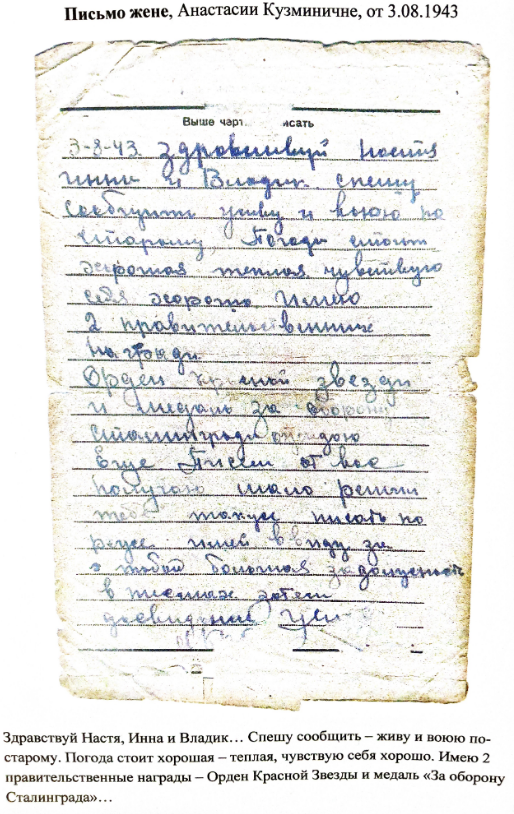 Письмо жене, Анастасии Кузминичне, от 3.08.1943
Выше черт исать
3-8-43 Здравствуй Настя
Инна и Владик спешу
сообщить живу и воюю по
старому Погода стоит
хорошая теплая чувствую
себя хорошо Имею
2 правительственные
награди
Орден красной звезди
и медаль за оборону
Сталинграда ожидаю
Еще Писем от вас
получаю мало решил
тебе также писать по
реже имей ввиду за
тобой большая задолженость
в письмах затем
досвидание
Здравствуй Настя, Инна и Владик… Спешу сообщить – живу и воюю по-
старому. Погода стоит хорошая – теплая, чувствую себя хорошо. Имею 2
правительственные награды – Орден Красной Звезды и медаль «За оборону
Сталинграда»…